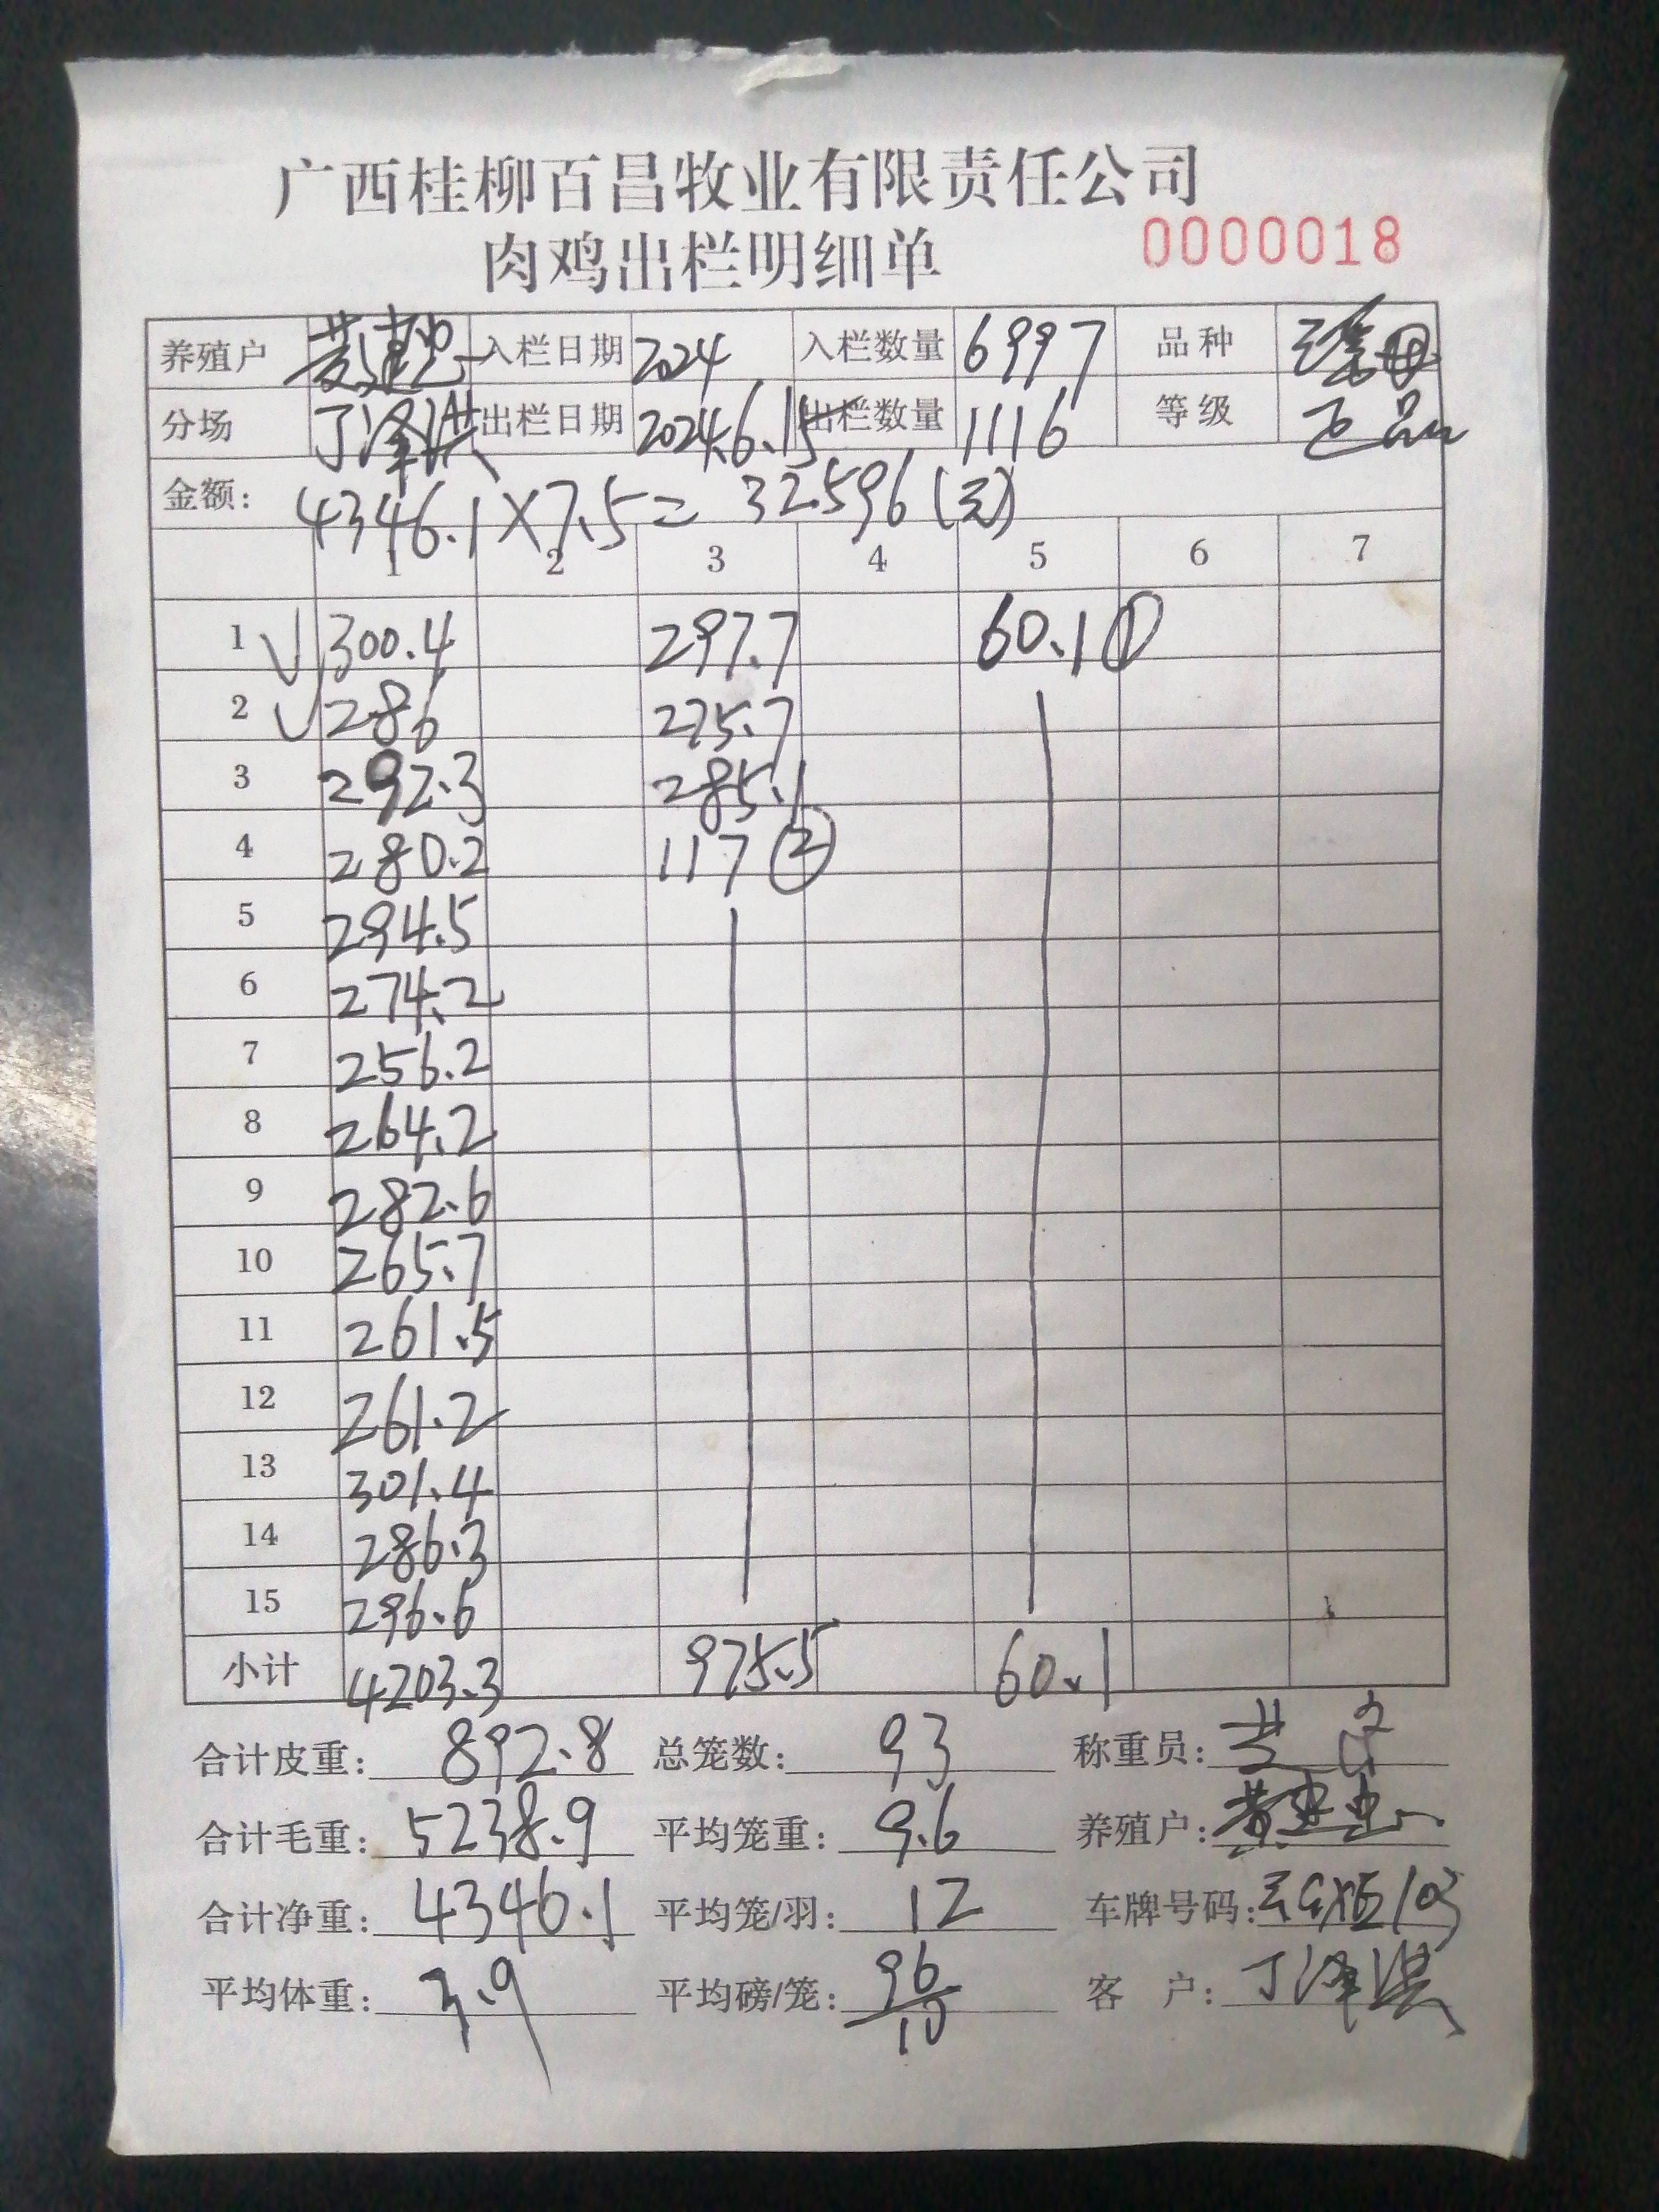 广西桂柳百昌牧业有限责任公司
肉鸡出栏明细单 0000018
养殖户 黄建忠 入栏日期 2024 入栏数量 6997 品种
分场 丁泽洪 出栏日期 2024.6.15 出栏数量 1116 等级 正品
金额: 4346.1×7.5=32596(元)
1 2 3 4 5 6 7
1 √ 300.4 297.7 60.1 ①
2 √ 286 275.7
3 292.3 285.1
4 280.2 117 ②
5 294.5
6 274.2
7 256.2
8 264.2
9 282.6
10 265.7
11 261.5
12 261.2
13 301.4
14 286.3
15 296.6
小计 4203.3 975.5 60.1
合计皮重: 892.8 总笼数: 93 称重员:
合计毛重: 5238.9 平均笼重: 9.6 养殖户: 黄建忠
合计净重: 4346.1 平均笼/羽: 12 车牌号码:
平均体重: 3.9 平均磅/笼: 96/10 客 户: 丁泽洪